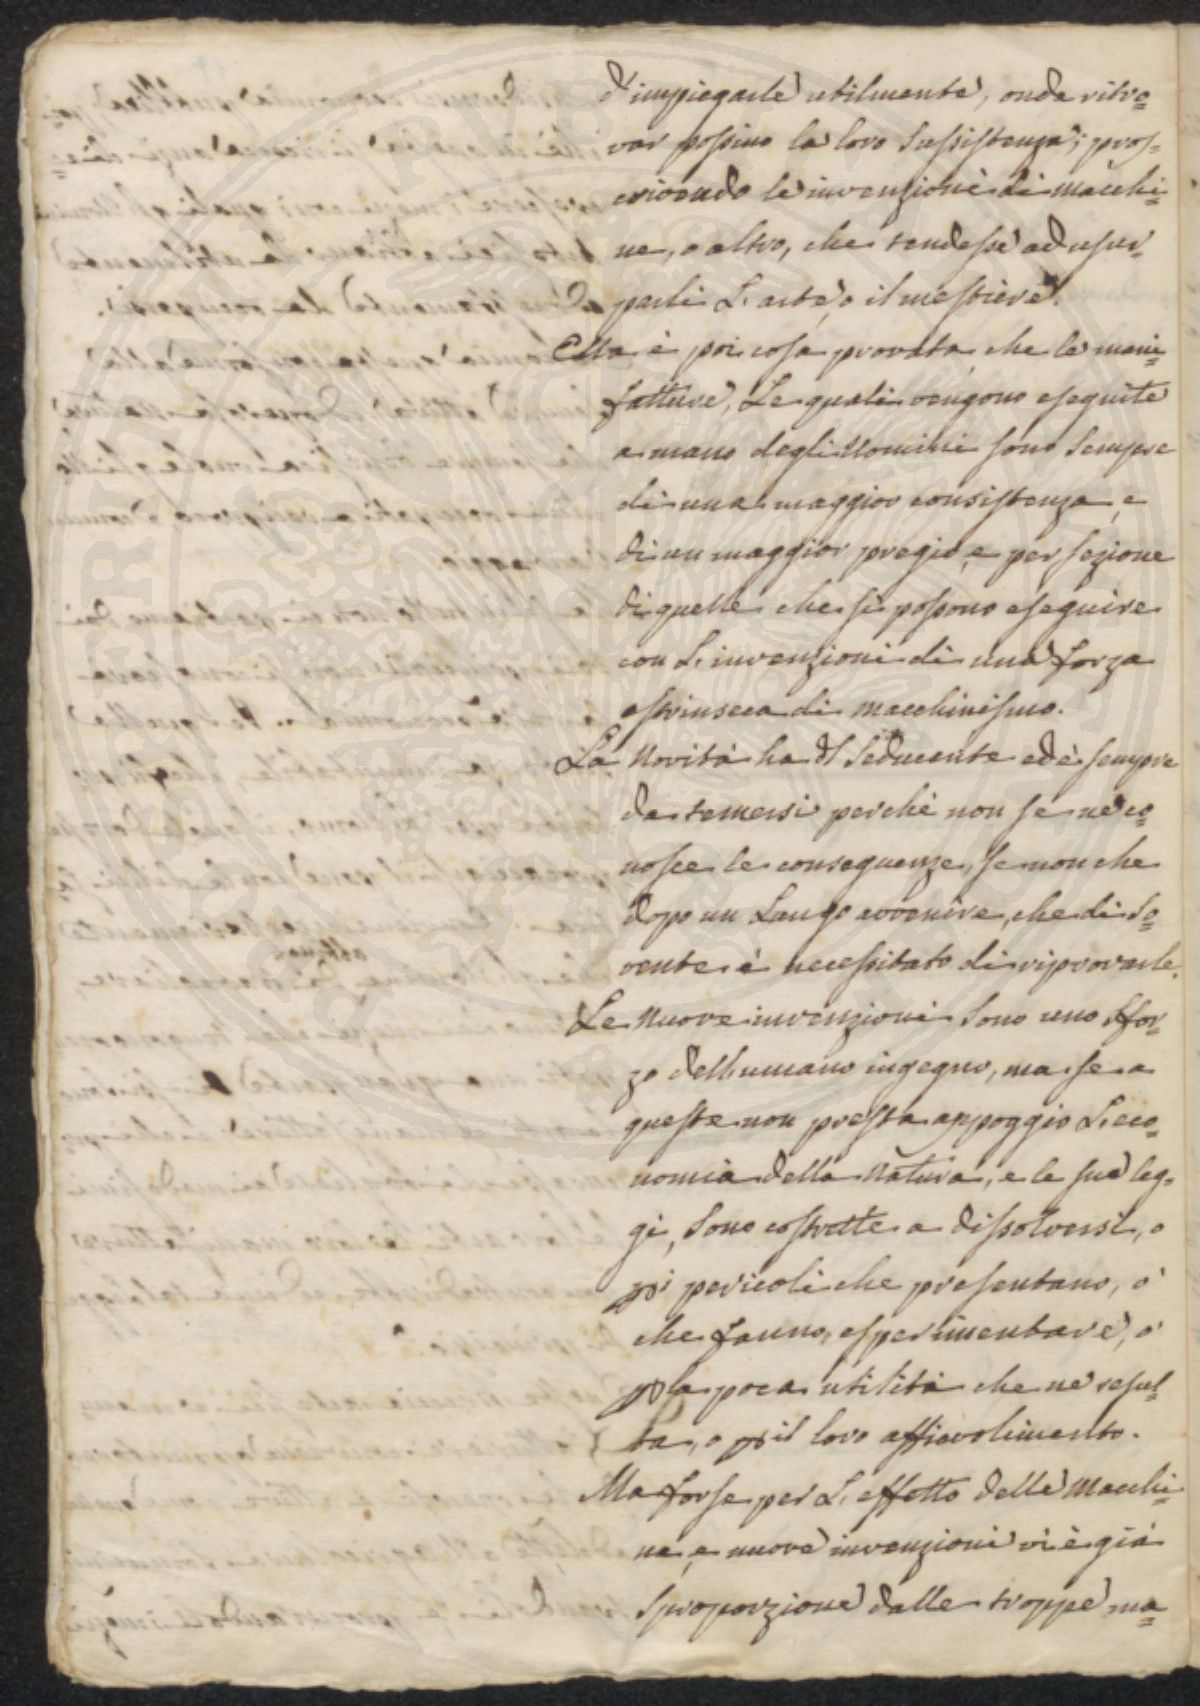 d'impiegarle utilmente, onde ritro=
var possino la loro Sussistenza; pros=
crivendo le invenzioni di macchi=
ne, o altro, che tendesse ad usur=
parli L'arte, o il mestiere.
Ella è poi cosa provata che le mani=
fatture, Le quali vengono eseguite
a mano degli Uomini sono Sempre
di una maggior consistenza, e
di un maggior pregio, e perfezione
di quelle che si possono eseguire
con L'invenzioni di una forza
estrinseca di macchinismo.
La Novità ha del Seducente ed è sempre
da temersi perchè non se ne co=
nosce le conseguenze, se non che
dopo un Lungo avvenire, che di So=
vente è necessitato di riprovarle.
Le Nuove invenzioni Sono uno sfor=
zo dell'umano ingegno, ma se a
queste non presta appoggio L'eco=
nomia della Natura, e le sue leg=
gi, Sono costrette a dissolversi, o
pi pericoli che presentano, o'
che fanno esperimentare, o'
p la poca utilità che ne resul=
ta, o p il loro affievolimento.
Ma forse per L'effetto delle Macchi=
ne, e nuove invenzioni vi è già
Sproporzione dalle troppe ma=